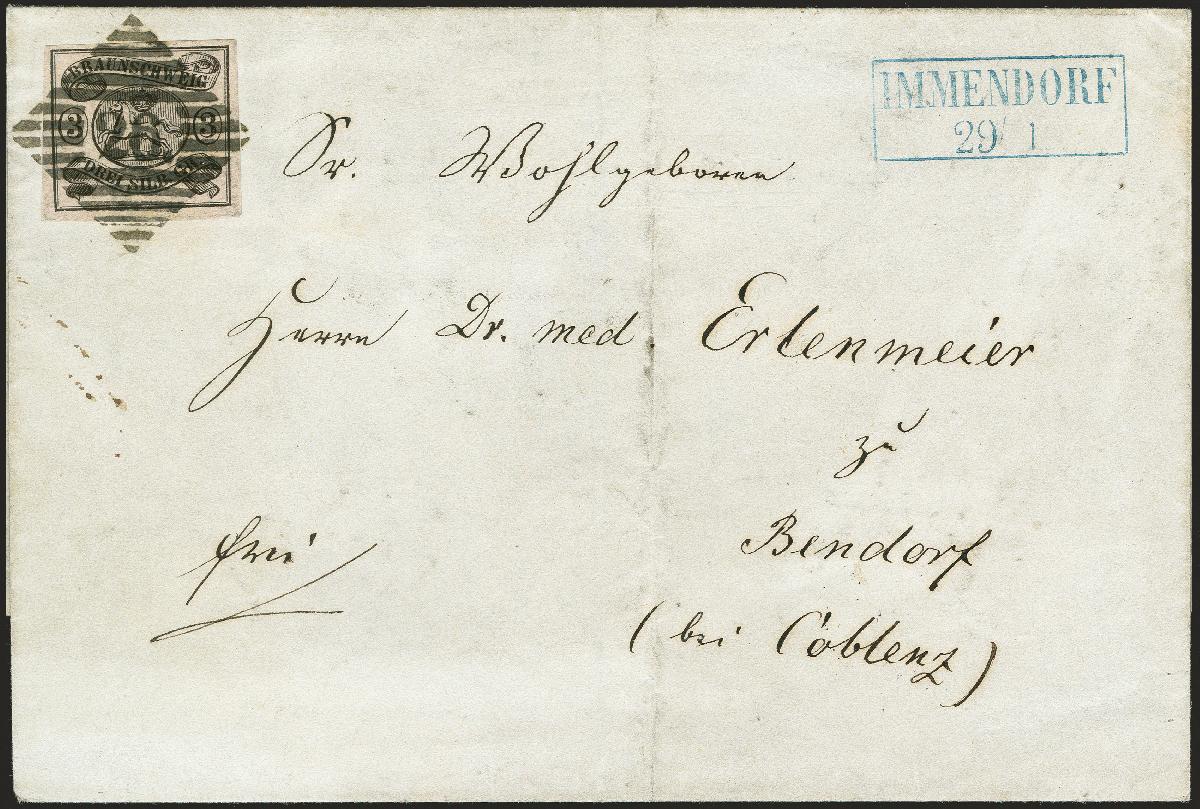 BRAUNSCHWEIG
3 3
DREI SILB. GR.
IMMENDORF
29/ 1
Sr. Wohlgeboren
Herrn Dr. med. Erlenmeier
zu
Bendorf
(bei Coblenz)
frei